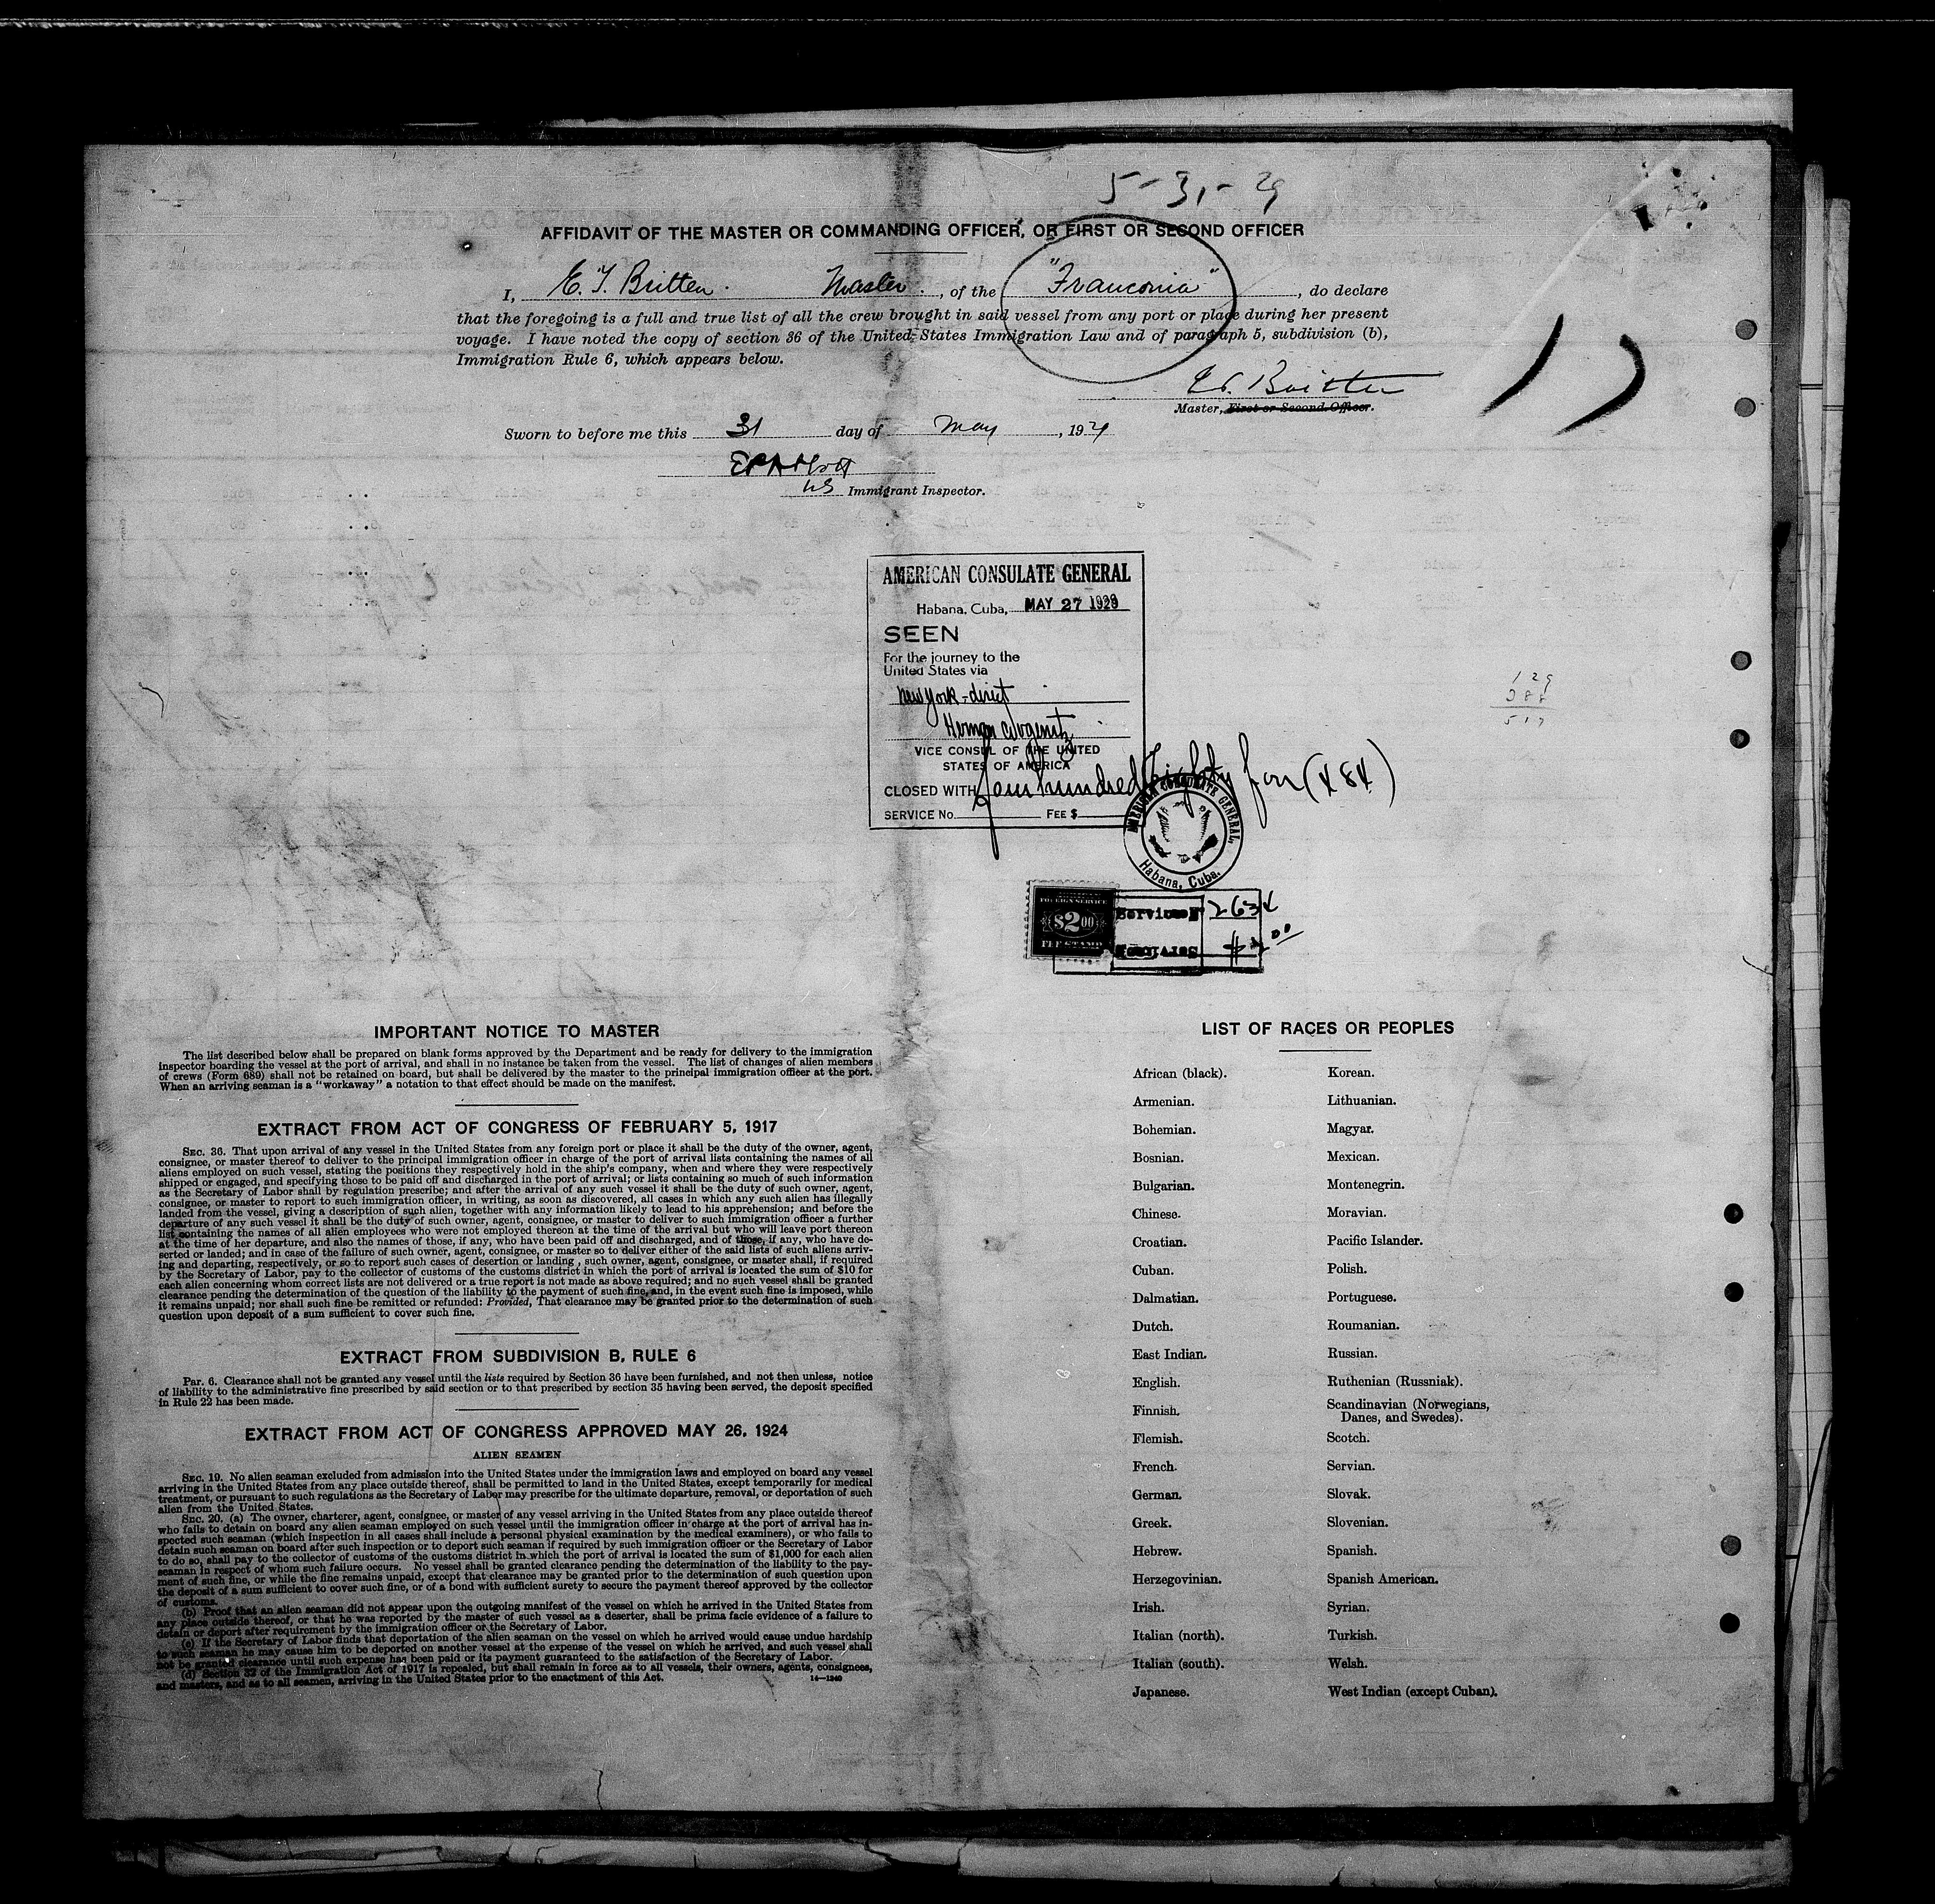 5-31-29
AFFIDAVIT OF THE MASTER OR COMMANDING OFFICER, OR FIRST OR SECOND OFFICER
I, E. T. Britten. Master, of the "Franconia", do declare
that the foregoing is a full and true list of all the crew brought in said vessel from any port or place during her present
voyage. I have noted the copy of section 36 of the United States Immigration Law and of paragraph 5, subdivision (b),
Immigration Rule 6, which appears below.
Britten
Master, First or Second Officer.
Sworn to before me this 31 day of May, 1929
US Immigrant Inspector.
AMERICAN CONSULATE GENERAL
Habana, Cuba, MAY 27 1929
SEEN
For the journey to the
United States via
New York - direct
VICE CONSUL OF THE UNITED
STATES OF AMERICA
CLOSED WITH four hundred Eighty four (484)
SERVICE No. FEE $
AMERICAN CONSULATE GENERAL,
Habana, Cuba.
129
388
517
FOREIGN SERVICE
$2.00
FEE STAMP
Service Nº 2634
IMPORTANT NOTICE TO MASTER
The list described below shall be prepared on blank forms approved by the Department and be ready for delivery to the immigration
inspector boarding the vessel at the port of arrival, and shall in no instance be taken from the vessel. The list of changes of alien members
of crews (Form 689) shall not be retained on board, but shall be delivered by the master to the principal immigration officer at the port.
When an arriving seaman is a "workaway" a notation to that effect should be made on the manifest.
EXTRACT FROM ACT OF CONGRESS OF FEBRUARY 5, 1917
SEC. 36. That upon arrival of any vessel in the United States from any foreign port or place it shall be the duty of the owner, agent,
consignee, or master thereof to deliver to the principal immigration officer in charge of the port of arrival lists containing the names of all
aliens employed on such vessel, stating the positions they respectively hold in the ship's company, when and where they were respectively
shipped or engaged, and specifying those to be paid off and discharged in the port of arrival; or lists containing so much of such information
as the Secretary of Labor shall by regulation prescribe; and after the arrival of any such vessel it shall be the duty of such owner, agent,
consignee, or master to report to such immigration officer, in writing, as soon as discovered, all cases in which any such alien has illegally
landed from the vessel, giving a description of such alien, together with any information likely to lead to his apprehension; and before the
departure of any such vessel it shall be the duty of such owner, agent, consignee, or master to deliver to such immigration officer a further
list containing the names of all alien employees who were not employed thereon at the time of the arrival but who will leave port thereon
at the time of her departure, and also the names of those, if any, who have been paid off and discharged, and of those, if any, who have de-
serted or landed; and in case of the failure of such owner, agent, consignee, or master so to deliver either of the said lists of such aliens arriv-
ing and departing, respectively, or so to report such cases of desertion or landing , such owner, agent, consignee, or master shall, if required
by the Secretary of Labor, pay to the collector of customs of the customs district in which the port of arrival is located the sum of $10 for
each alien concerning whom correct lists are not delivered or a true report is not made as above required; and no such vessel shall be granted
clearance pending the determination of the question of the liability to the payment of such fine, and, in the event such fine is imposed, while
it remains unpaid; nor shall such fine be remitted or refunded: Provided, That clearance may be granted prior to the determination of such
question upon deposit of a sum sufficient to cover such fine.
EXTRACT FROM SUBDIVISION B, RULE 6
PAR. 6. Clearance shall not be granted any vessel until the lists required by Section 36 have been furnished, and not then unless, notice
of liability to the administrative fine prescribed by said section or to that prescribed by section 35 having been served, the deposit specified
in Rule 22 has been made.
EXTRACT FROM ACT OF CONGRESS APPROVED MAY 26, 1924
ALIEN SEAMEN
SEC. 19. No alien seaman excluded from admission into the United States under the immigration laws and employed on board any vessel
arriving in the United States from any place outside thereof, shall be permitted to land in the United States, except temporarily for medical
treatment, or pursuant to such regulations as the Secretary of Labor may prescribe for the ultimate departure, removal, or deportation of such
alien from the United States.
SEC. 20. (a) The owner, charterer, agent, consignee, or master of any vessel arriving in the United States from any place outside thereof
who fails to detain on board any alien seaman employed on such vessel until the immigration officer in charge at the port of arrival has in-
spected such seaman (which inspection in all cases shall include a personal physical examination by the medical examiners), or who fails to
detain such seaman on board after such inspection or to deport such seaman if required by such immigration officer or the Secretary of Labor
to do so, shall pay to the collector of customs of the customs district in which the port of arrival is located the sum of $1,000 for each alien
seaman in respect of whom such failure occurs. No vessel shall be granted clearance pending the determination of the liability to the pay-
ment of such fine, or while the fine remains unpaid, except that clearance may be granted prior to the determination of such question upon
the deposit of a sum sufficient to cover such fine, or of a bond with sufficient surety to secure the payment thereof approved by the collector
of customs.
(b) Proof that an alien seaman did not appear upon the outgoing manifest of the vessel on which he arrived in the United States from
any place outside thereof, or that he was reported by the master of such vessel as a deserter, shall be prima facie evidence of a failure to
detain or deport after requirement by the immigration officer or the Secretary of Labor.
(c) If the Secretary of Labor finds that deportation of the alien seaman on the vessel on which he arrived would cause undue hardship
to such seaman he may cause him to be deported on another vessel at the expense of the vessel on which he arrived, and such vessel shall
not be granted clearance until such expense has been paid or its payment guaranteed to the satisfaction of the Secretary of Labor.
(d) Section 32 of the Immigration Act of 1917 is repealed, but shall remain in force as to all vessels, their owners, agents, consignees,
and masters, and as to all seamen, arriving in the United States prior to the enactment of this Act.
14—1240
LIST OF RACES OR PEOPLES
African (black). Korean.
Armenian. Lithuanian.
Bohemian. Magyar.
Bosnian. Mexican.
Bulgarian. Montenegrin.
Chinese. Moravian.
Croatian. Pacific Islander.
Cuban. Polish.
Dalmatian. Portuguese.
Dutch. Roumanian.
East Indian. Russian.
English. Ruthenian (Russniak).
Finnish. Scandinavian (Norwegians,
Danes, and Swedes).
Flemish. Scotch.
French. Servian.
German. Slovak.
Greek. Slovenian.
Hebrew. Spanish.
Herzegovinian. Spanish American.
Irish. Syrian.
Italian (north). Turkish.
Italian (south). Welsh.
Japanese. West Indian (except Cuban).